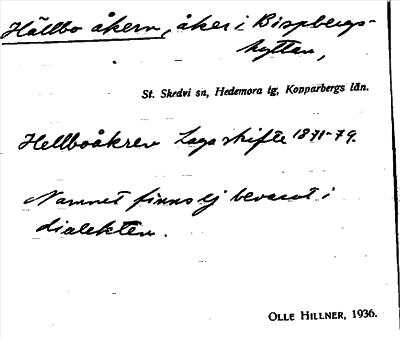 Hällbo åkern, åker i Bispbergs-
hyttan,
St. Skedvi sn, Hedemora tg, Kopparbergs län.
Hellboåkren Laga skifte 1871-79.
Namnet finns ej bevarat i
dialekten.
OLLE HILLNER, 1936.